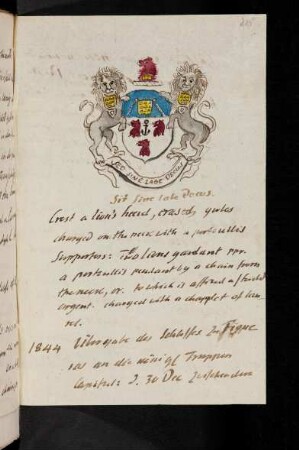 SIT SINE LABE DECUS
Sit sine labe Decus.
Crest a lion's head, erased, gules
charged on the neck with a portcullis
Supporters: Two lions gardant ppr.
a portcullis pendant by a chain from
the neck, or. to which is affixed a shield
argent. charged with a chaplet of lau-
rel.
1844 Übergabe des Schlosses
an die königl Truppen
30 Dec